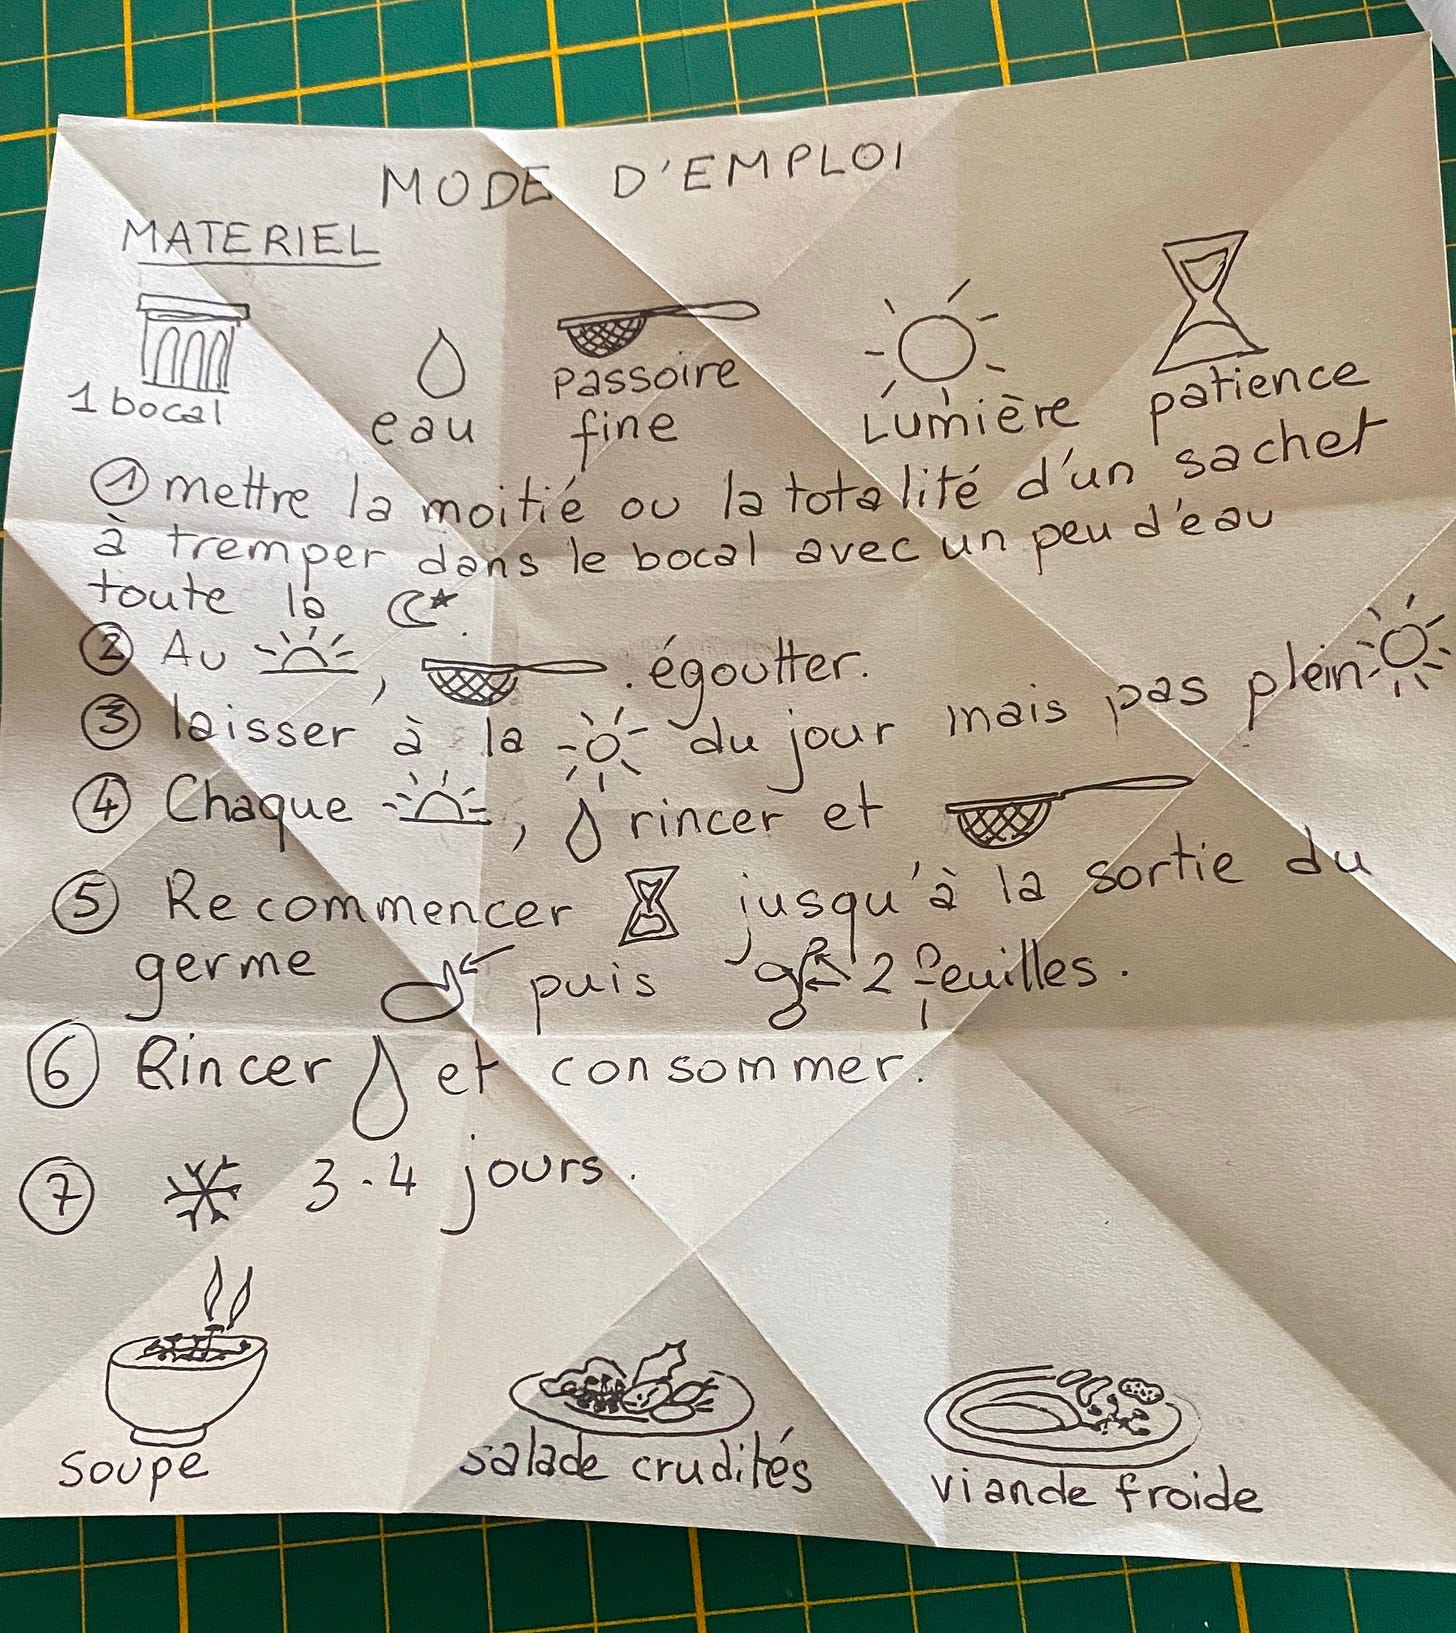 MODE D'EMPLOI
MATERIEL
1 bocal
eau
passoire
fine
Lumière
patience
① mettre la moitié ou la totalité d'un sachet
à tremper dans le bocal avec un peu d'eau
toute la
② Au , . égoutter.
③ laisser à la du jour mais pas plein
④ Chaque , rincer et
⑤ Recommencer jusqu'à la sortie du
germe puis 2 feuilles.
⑥ Rincer et consommer.
⑦ 3-4 jours.
soupe
salade crudités
viande froide